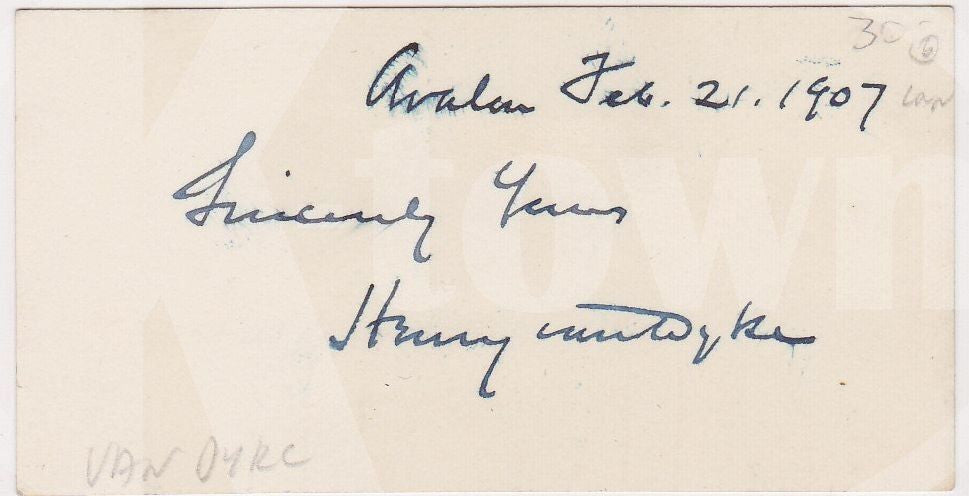 30 6
Avalon Feb. 21. 1907
VAN
Sincerely Yours
Henry van Dyke
VAN DYKE
Ktown